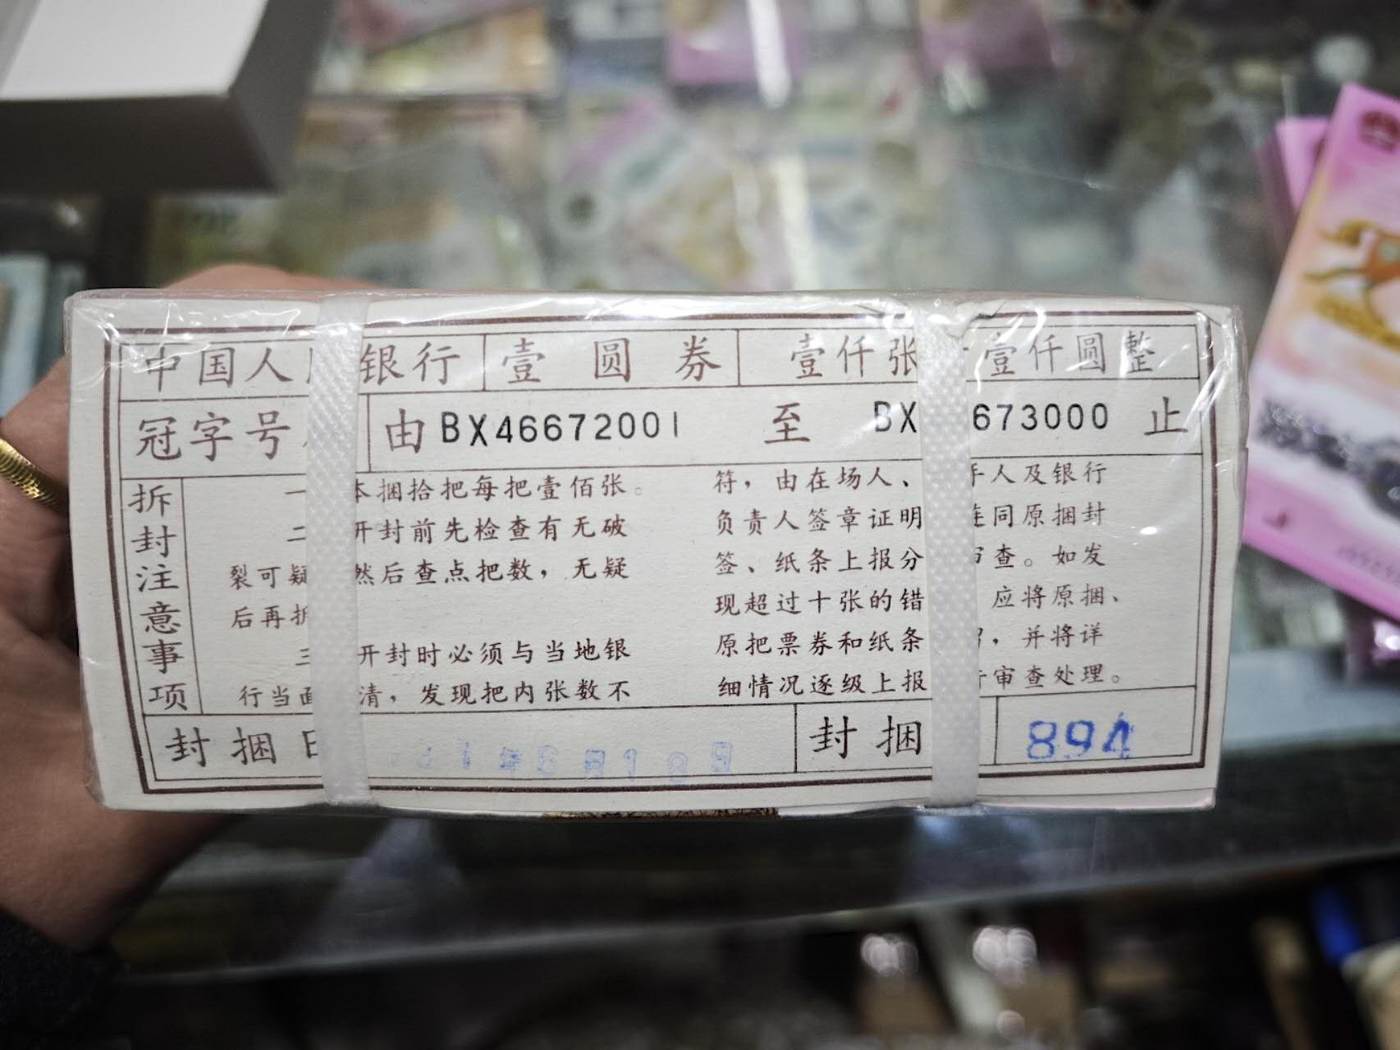 中国人 银行 壹圆券 壹仟张 壹仟圆整
冠字号 由BX46672001 至 BX 673000 止
拆封注意事项
一 本捆拾把每把壹佰张。
二 开封前先检查有无破
裂可疑 然后查点把数，无疑
后再拆
三 开封时必须与当地银
行当面 清，发现把内张数不
符，由在场人、 手人及银行
负责人签章证明 连同原捆封
签、纸条上报分 审查。如发
现超过十张的错 应将原捆、
原把票券和纸条 ，并将详
细情况逐级上报 行审查处理。
封捆日
封捆 894